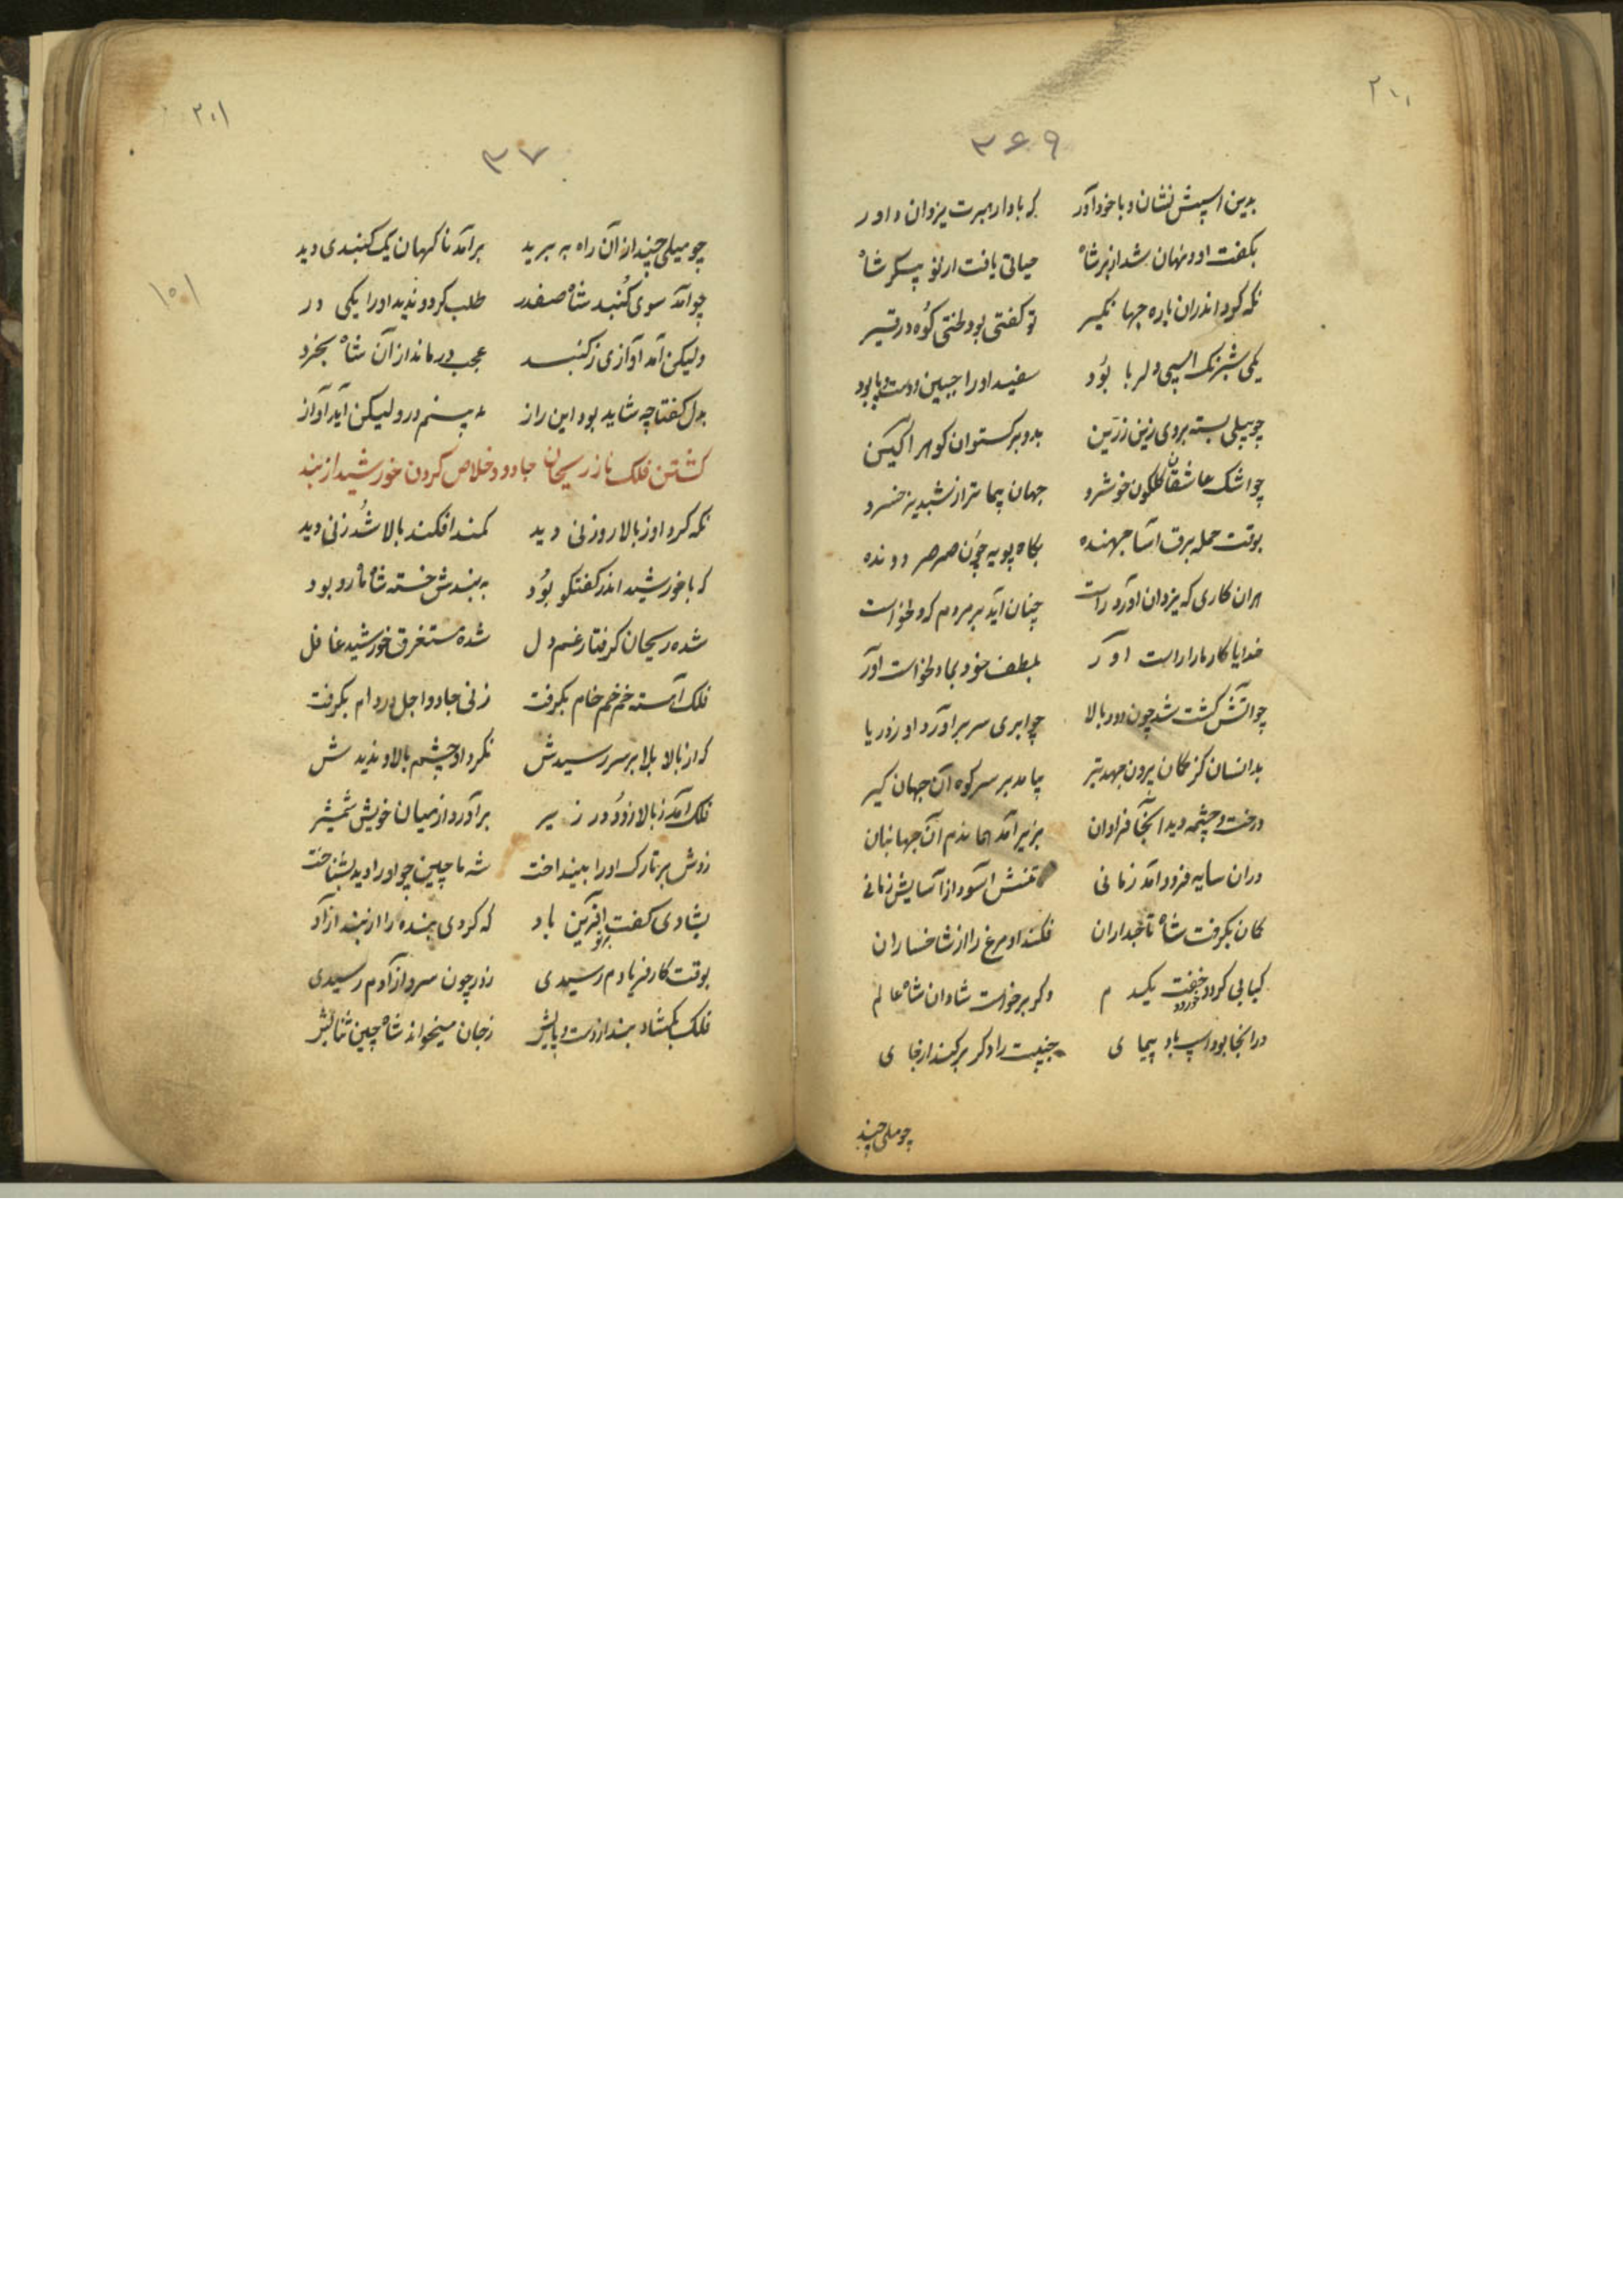 ۳۶۹
بدین اسپش نشان و با خود آور که بادا رهبرت یزدان داور
بگفت او و نهان شد از بر شاه حیاتی یافت از نو پیکر شاه
نگه کرد اندران باره جهانگیر تو گفتی بود لختی کوه در قیر
یکی شبرنگ اسپی دلربا بود سفید او را جبین و دست و پا بود
چو پیلی بسته بر وی زین زرین بدو برگستوان گوهر آگین
چو اشک عاشقان گلگون خوشرو جهان پیماتر از شبدیز خسرو
بوقت حمله برق آسا جهنده بگاه پویه چون صرصر دونده
هران کاری که یزدان آورد راست چنان آید بر مردم که دلخواست
خدایا کار ما را راست آور بلطف خود بما دلخواست آور
چو آتش گشت شد چون دود بالا چو ابری سر برآورد او ز دریا
بدانسان کز کمان بیرون جهد تیر بیامد بر سر کوه آن جهان گیر
درخت و چشمه دید آنجا فراوان بزیر آمد هماندم آن جهانبان
دران سایه فرود آمد زمانی تنش آسود از آسایش زمانی
کمان بگرفت شاه تاجداران فکند او مرغ را از شاخساران
کبابی کرد و خورد و خفت یکدم دگر برخواست شادان شاه عالم
در آنجا بود اسپ باد پیمای جنیبت را دگر برکند از جای
چو میلی چند
۳۷
۲۰۱
چو میلی چند ازان راه ببرید برآمد ناگهان یک گنبدی دید
چو آمد سوی گنبد شاه صفدر طلب کرد و ندید او را یکی در
ولیکن آمد آوازی ز گنبد عجب درماند از آن شاه بخرد
بدل گفتا چه شاید بود این راز نه بینم در ولیکن آید آواز
کشتن فلک ناز ریحان جادو و خلاص کردن خورشید از بند
نگه کرد او ز بالا روزنی دید کمند افکند بالا شد زنی دید
که با خورشید اندر گفتگو بود به بندش خسته شاه ماه رو بود
شده ریحان گرفتار غم دل شده مستغرق خورشید غافل
فلک آهسته خم خام بگرفت زنی جادو اجل در دام بگرفت
که از بالا بلا بر سر رسیدش نکرد او چشم بالا و ندیدش
فلک آمد ز بالا زود در زیر برآورد از میان خویش شمشیر
زدش بر تارک او را بینداخت شه ماچین چو او را دید بشناخت
بشادی گفت بر تو آفرین باد که کردی بنده را از بند آزاد
بوقت کار فریادم رسیدی ز در چون سرو آزادم رسیدی
فلک بگشاد بند از دست و پایش ز جان میخواند شاه چین ثنایش